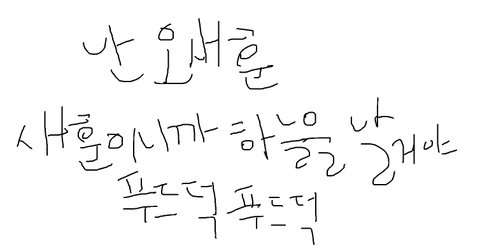 난 오새훈
새훈이니까 하늘을 날거야
푸드덕 푸드덕